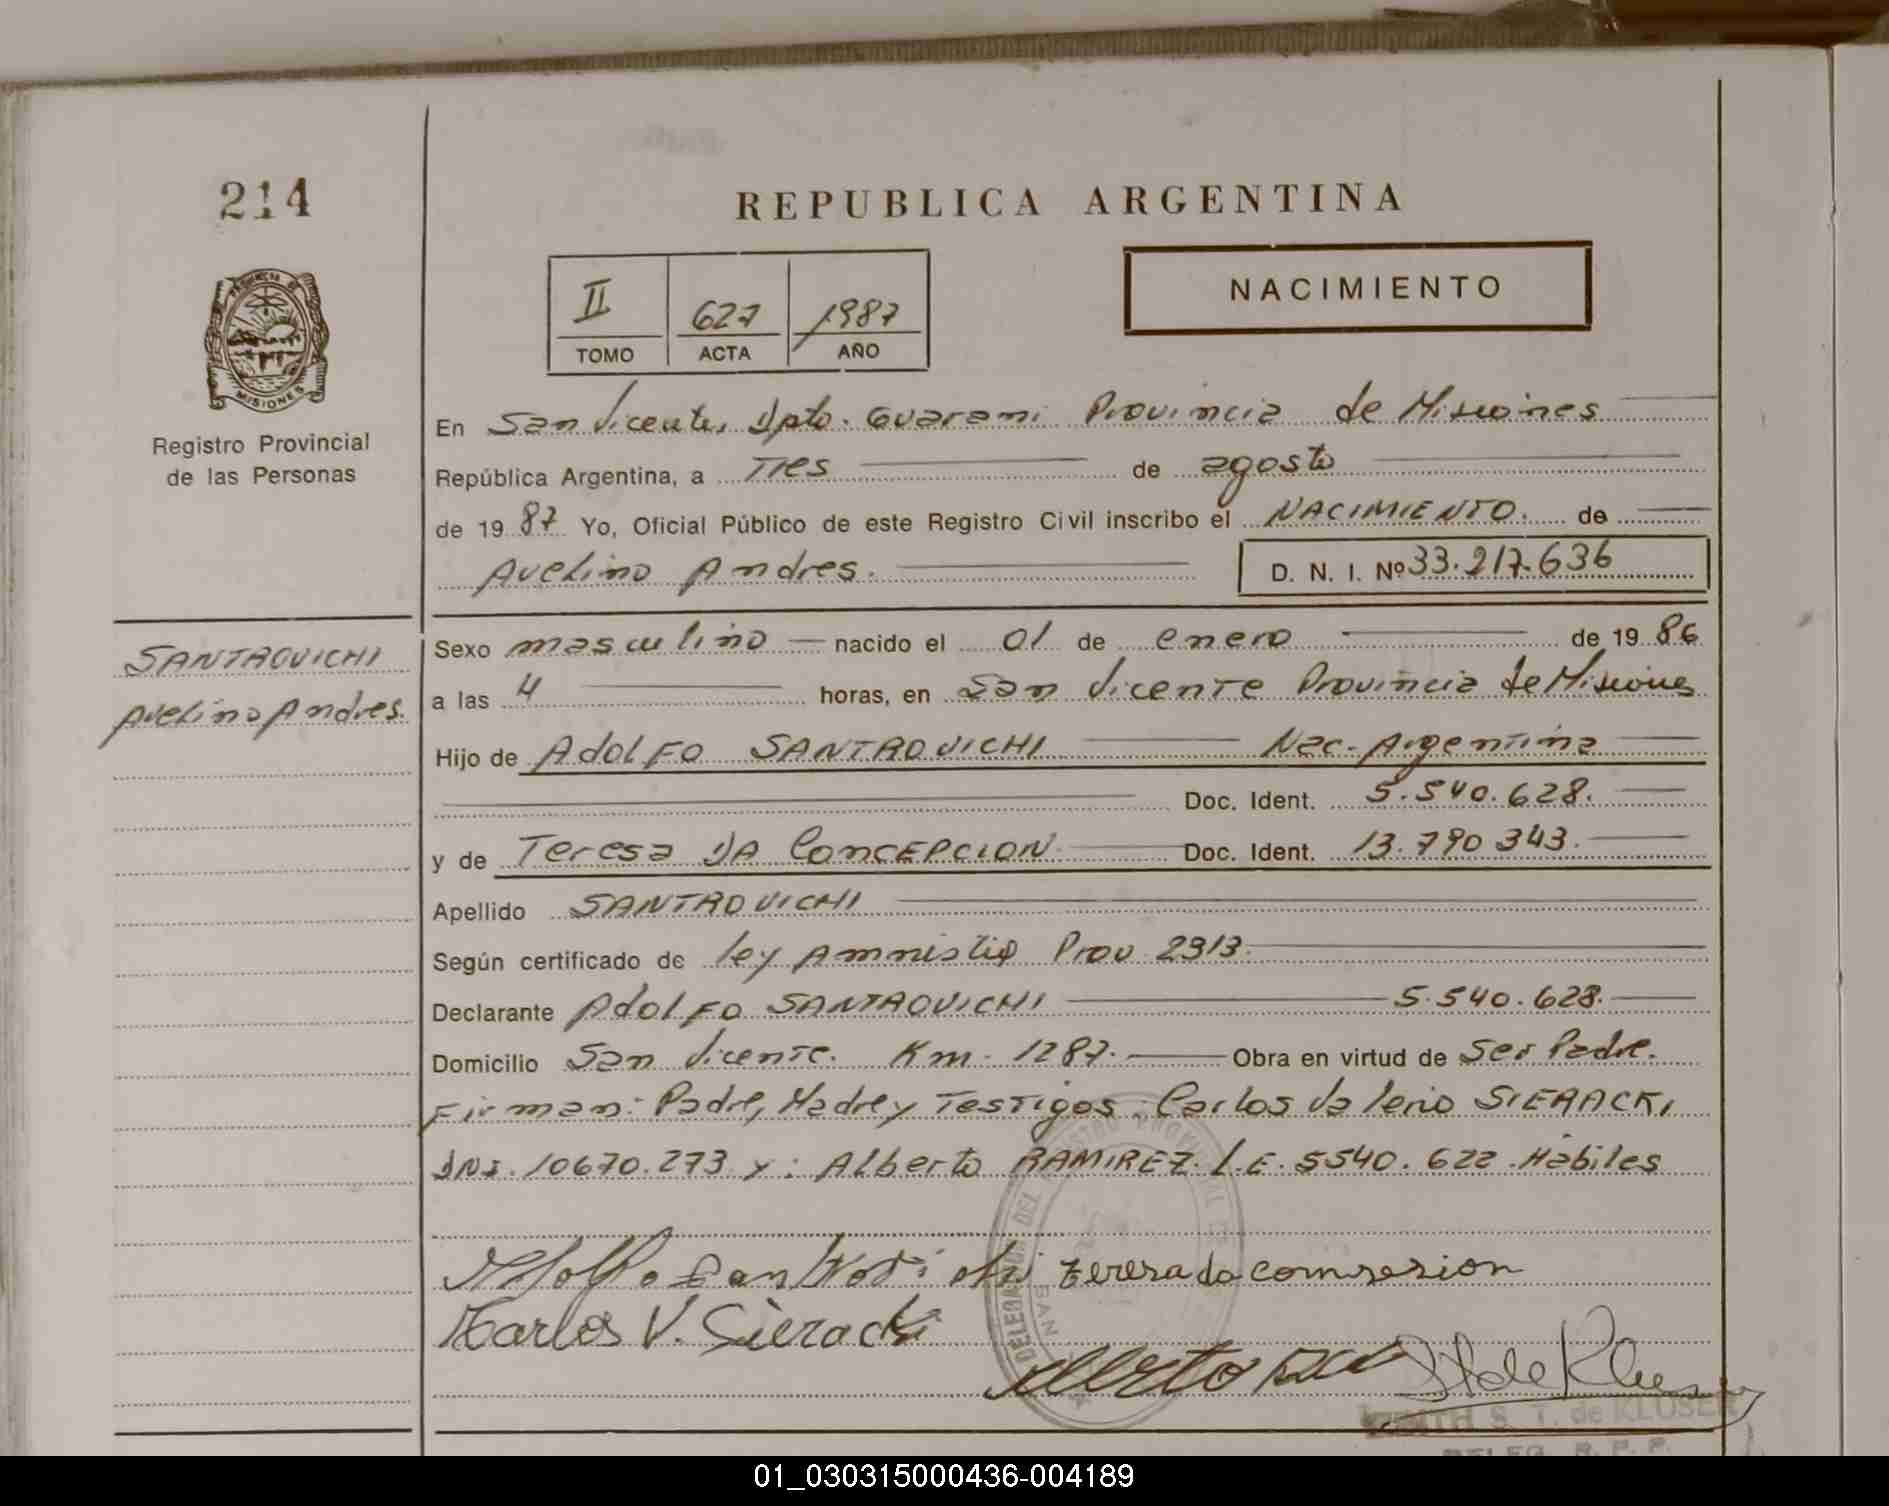 214
REPUBLICA ARGENTINA
II 627 1987
TOMO ACTA AÑO
NACIMIENTO
PROVINCIA DE
MISIONES
Registro Provincial
de las Personas
En San Vicente, Dpto. Guarani Provincia de Misiones
República Argentina, a Tres de agosto
de 1987 Yo, Oficial Público de este Registro Civil inscribo el NACIMIENTO. de
Avelino Andres. D. N. I. Nº 33.217.636
SANTROVICHI
Avelino Andres.
Sexo masculino nacido el 01 de enero de 1986
a las 4 horas, en San Vicente Provincia de Misiones
Hijo de Adolfo SANTROVICHI Nac. Argentina
Doc. Ident. 5.540.628.
y de Teresa DA CONCEPCION Doc. Ident. 13.790 343.
Apellido SANTROVICHI
Según certificado de ley Amnistia Prov 2313.
Declarante Adolfo SANTROVICHI 5.540.628.
Domicilio San Vicente. Km. 1287. Obra en virtud de Ser Padre.
Firman: Padre, Madre y Testigos: Carlos Valerio SIERACKI,
DNI. 10670.273 y: Alberto RAMIREZ. L.E. 5540.622. Hábiles
teresa da comsesion
Carlos V. Sieracki
DELEGACION DEL REGISTRO PROVINCIAL DE
SAN
S. T. de KLUSER
DELEG. R. P. P.
01_030315000436-004189